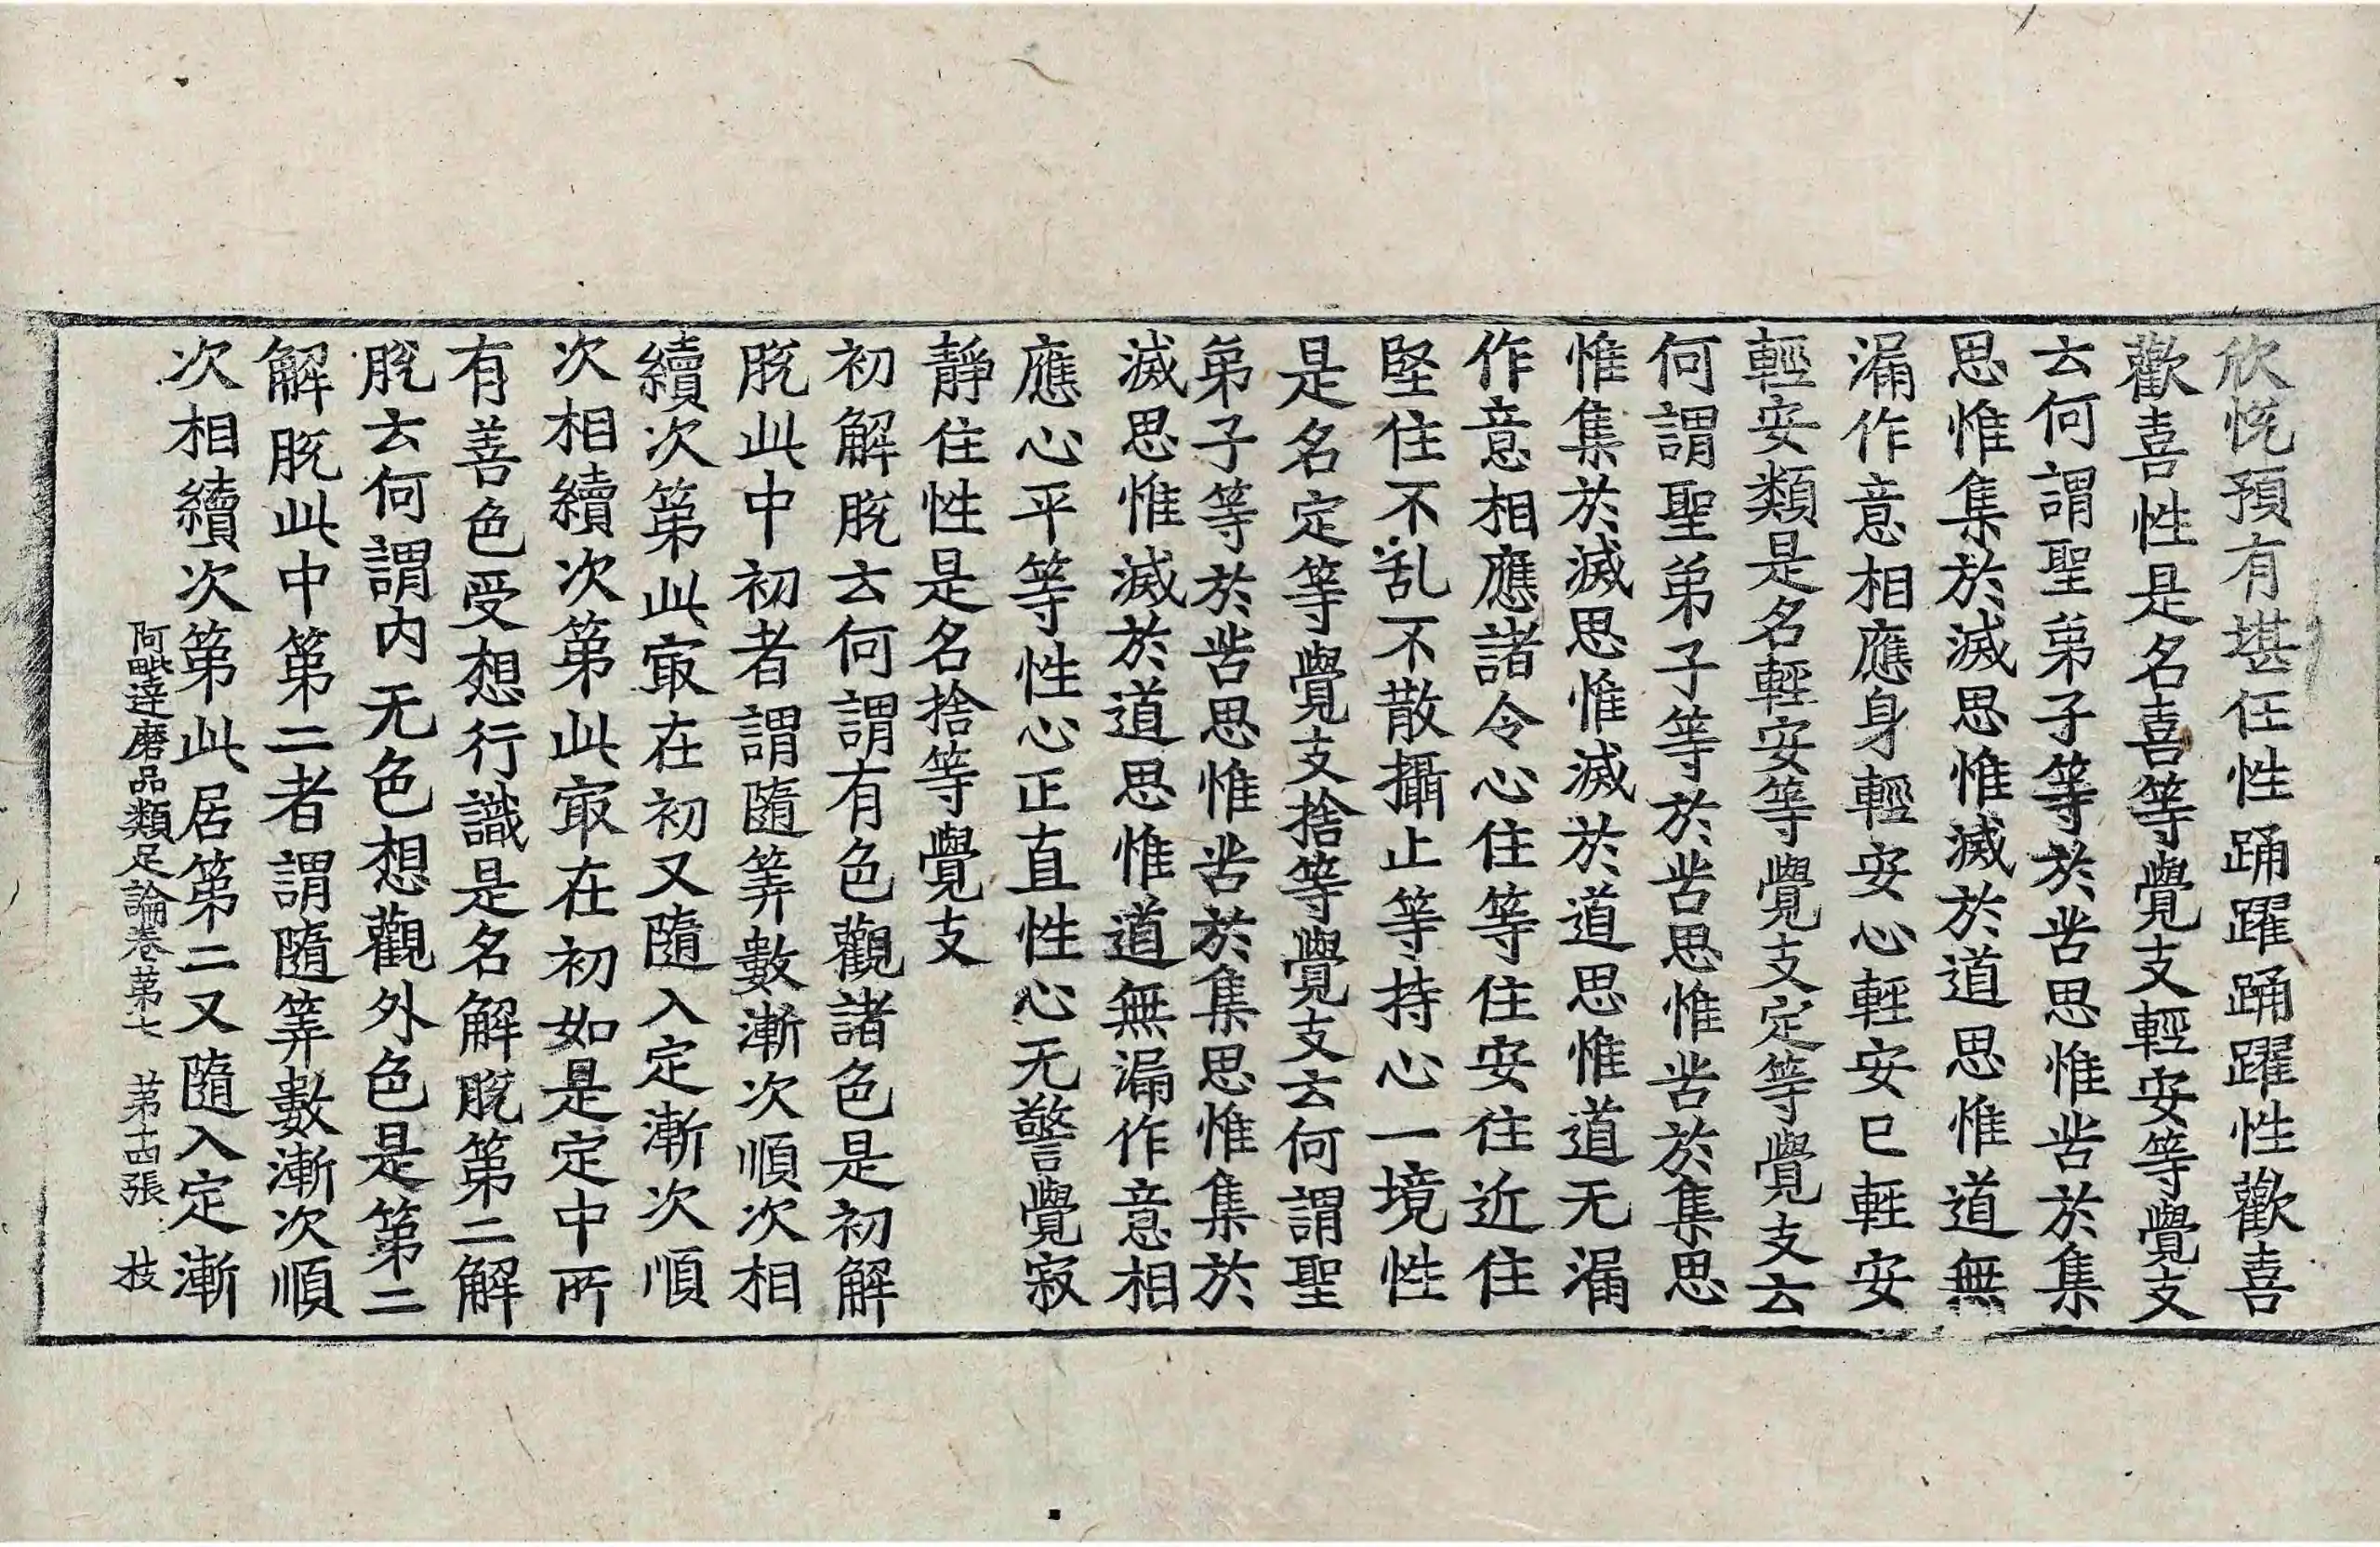 欣悅預有堪任性踊躍踊躍性歡喜
歡喜性是名喜等覺支輕安等覺支
云何謂聖弟子等於苦思惟苦於集
思惟集於滅思惟滅於道思惟道無
漏作意相應身輕安心輕安已輕安
輕安類是名輕安等覺支定等覺支云
何謂聖弟子等於苦思惟苦於集思
惟集於滅思惟滅於道思惟道无漏
作意相應諸令心住等住安住近住
堅住不乱不散攝止等持心一境性
是名定等覺支捨等覺支云何謂聖
弟子等於苦思惟苦於集思惟集於
滅思惟滅於道思惟道無漏作意相
應心平等性心正直性心无警覺寂
靜住性是名捨等覺支
初解脫云何謂有色觀諸色是初解
脫此中初者謂隨筭數漸次順次相
續次第此㝡在初又隨入定漸次順
次相續次第此㝡在初如是定中所
有善色受想行識是名解脫第二解
脫云何謂內无色想觀外色是第二
解脫此中第二者謂隨筭數漸次順
次相續次第此居第二又隨入定漸
阿毗達磨品類足論卷第七 第十四張 枝